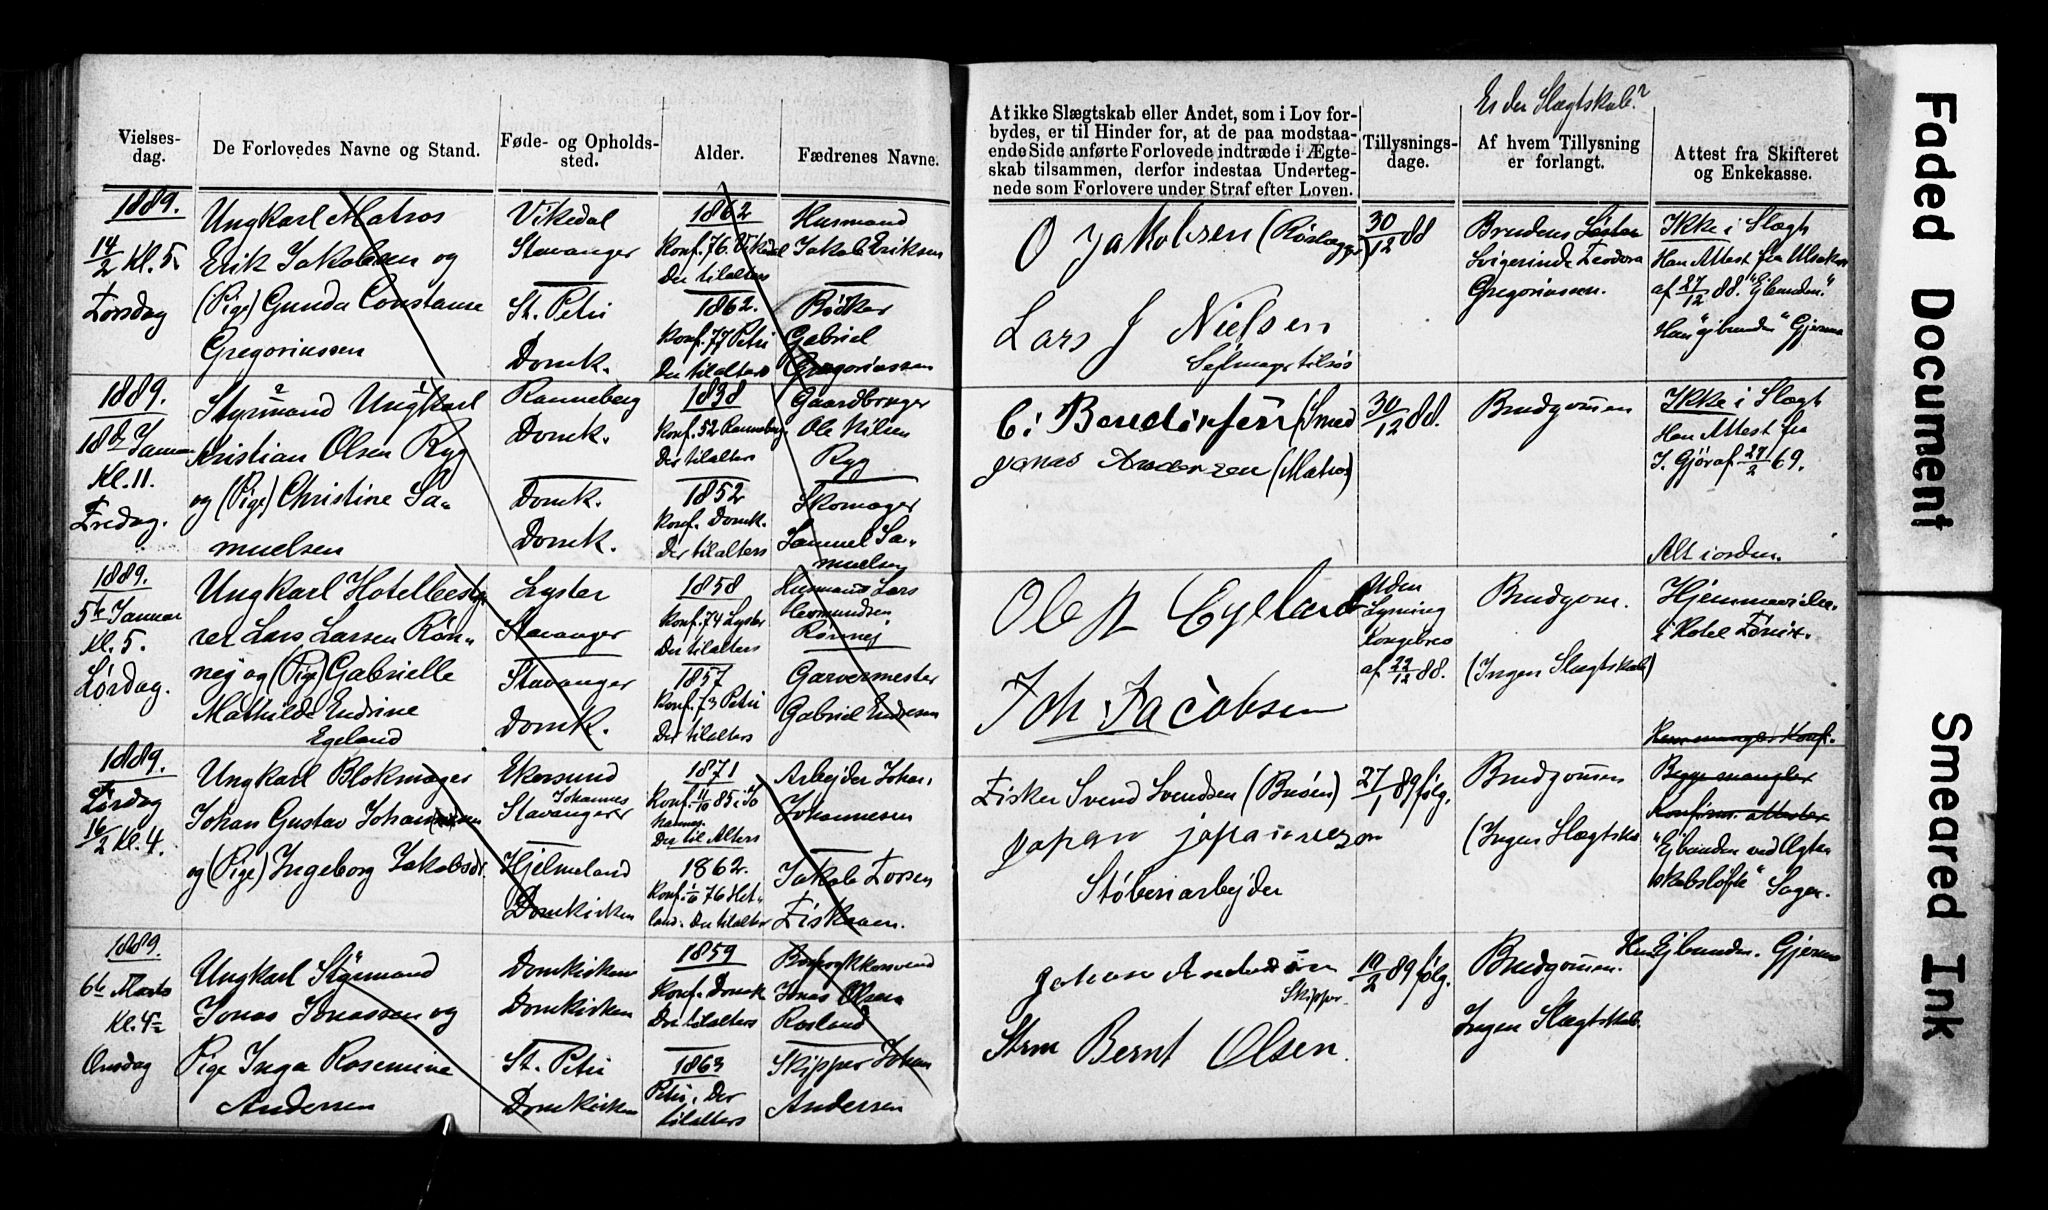 Er der Slægtskab?
Vielses-
dag.
De Forlovedes Navne og Stand.
Føde- og Opholds-
sted.
Alder.
Fædrenes Navne.
At ikke Slægtskab eller Andet, som i Lov for-
bydes, er til Hinder for, at de paa modstaa-
ende Side anførte Forlovede indtræde i Ægte-
skab tilsammen, derfor indestaa Underteg-
nede som Forlovere under Straf efter Loven.
Tillysnings-
dage.
Af hvem Tillysning
er forlangt.
Attest fra Skifteret
og Enkekasse.
1889.
14/2 Kl. 5
Torsdag
Ungkarl Matros
Erik Jakobsen og
(Pige) Gunda Constanse
Gregoriussen
Vikedal
Stavanger
St. Petri
Domk.
1862
Konf. 76. Vikedal
Der tilalters
1862.
Konf. 77 Petri
Der tilalters
Husmand
Jakob Eriksen
Bødker
Gabriel
Gregoriussen
O Jakobsen
Lars J Nielsen
30/12 88
Brudens
Svigerinde Teodora
Gregoriussen.
Ikke i Slægt
Han Attest fra
af 27/12 88. "Ubunden."
1889.
18de Januar
Kl. 11.
Fredag.
Styrmand Ungkarl
Kristian Olsen Ryg
og (Pige) Christine Sa-
muelsen
Ranneberg
Domk.
Domk.
Domk.
1838
Konf. 52 Ranneberg
Der tilalters
1852
Konf. Domk.
Der tilalters
Gaardbruger
Ole Nilsen
Ryg
Skomager
Samuel Sa-
muelsen
(Smed
Jonas Andersen (Matros)
30/12 88.
Brudgommen
Ikke i Slægt
Han Attest fra
af 27/2 69.
Alt iorden.
1889.
5te Januar
Kl. 5.
Lørdag.
Ungkarl Hotelbesty-
rer Lars Larsen Røn-
nej og (Pige) Gabrielle
Mathilde Endrine
Egeland
Lyster
Stavanger
Stavanger
Domk.
1858
Konf. 74 Lyster
Der tilalters
1857
Konf. 73 Petri
Der tilalters
Husmand Lars
Hermundsen
Rønnej
Garvermester
Gabriel Endresen
Joh. Jacobsen
Uden
Lysning
Kongebrev
af 22/12 88.
Brudgom.
(Ingen Slægtskab)
1889.
Lørdag
16/2 Kl. 4.
Ungkarl Blokmager
Johan Gustav Johannesen
og (Pige) Ingeborg Jakobsdr.
Ekersund
Johannes
Stavanger
Hjelmeland
Domkirken
1871
Konf. 11/10 85 i Jo
hannes
Der til Alters
1862.
Konf. 1/10 76 Het-
land. Der tilalters
Arbejder Johan.
Johannesen
Jakob Torsen
Fiskaaen.
Fisker Svend Svendsen
Johan Johannesen
Støberiarbejder
27/1 89 følg.
Brudgommen
(Ingen Slægtskab
Begge mangler
Konfirm. attester
"Ubunden ved Ægte
skabsløfte"
1889.
6te Marts
Kl. 4½
Onsdag
Ungkarl Styrmand
Jonas Jonassen og
Pige Inga Rosemine
Andersen
Domkirken
Domkirken
St. Petri
Domkirken
1859
Konf. Domk
Der tilalters
1863
Petri. Der
tilalters
Jonas Olsen
Rosland
Skipper Johan
Andersen
Johan Andersen
Skipper
Strm Bernt Olsen.
10/2 89 følg.
Brudgommen.
Ingen Slægtskab.
Faded Document
Smeared Ink